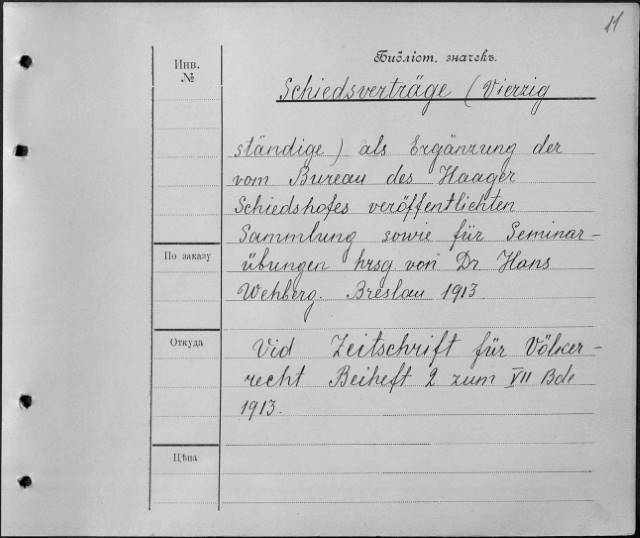 11
Инв.
№
Библіот. значекъ.
Schiedsverträge (Vierzig
ständige) als Ergänzung der
vom Bureau des Haager
Schiedshofes veröffentlichten
Sammlung sowie für Seminar-
По заказу
übungen hrsg von Dr Hans
Wehberg. Breslau 1913
Откуда
Vid Zeitschrift für Völker-
recht Beiheft 2 zum VII Bde
1913.
Цѣна